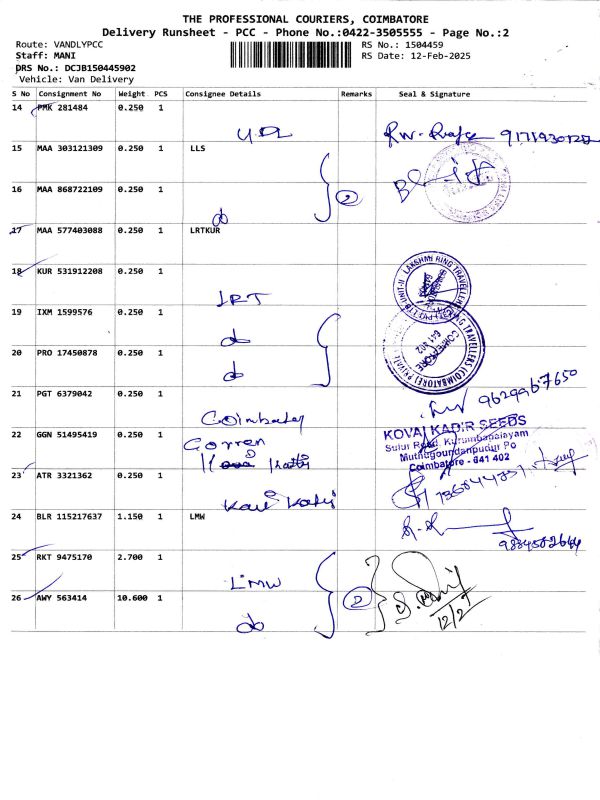 THE PROFESSIONAL COURIERS, COIMBATORE
Delivery Runsheet - PCC - Phone No.:0422-3505555 - Page No.:2
Route: VANDLYPCC
RS No.: 1504459
Staff: MANI
RS Date: 12-Feb-2025
DRS No.: DCJB150445902
Vehicle: Van Delivery
S No Consignment No Weight PCS Consignee Details Remarks Seal & Signature
14 PMK 281484 0.250 1
15 MAA 303121309 0.250 1 LLS
2
16 MAA 868722109 0.250 1
do
17 MAA 577403088 0.250 1 LRTKUR
18 KUR 531912208 0.250 1
LRT
19 IXM 1599576 0.250 1
do
20 PRO 17450878 0.250 1
do
21 PGT 6379042 0.250 1
9629967650
22 GGN 51495419 0.250 1
KOVAI KADIR SEEDS
Sulur Road, Kurumbapalayam
Muthugoundanpudur Po
Coimbatore - 641 402
23 ATR 3321362 0.250 1
24 BLR 115217637 1.150 1 LMW
25 RKT 9475170 2.700 1
LMW
26 AWY 563414 10.600 1
2
do
12/2